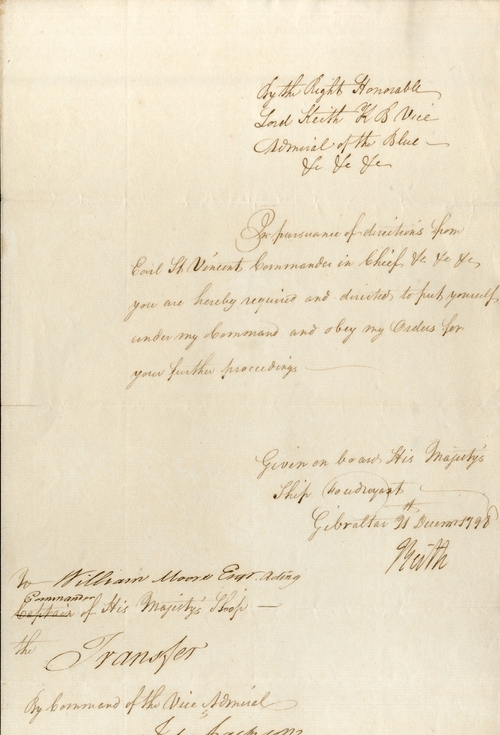 By the Right Honorable
Lord Keith K B Vice
Admiral of the Blue
&c &c &c
In pursuance of directions from
Earl St. Vincent Commander in Chief &c &c &c
you are hereby required and directed to put yourself
under my Command and obey my Orders for
your further proceedings
Given on board His Majesty's
Ship Foudroyant
Gibraltar 1798
Keith
To William Moore Esqr. Acting
Commander
Captain of His Majesty's Sloop
the
Transfer
By Command of the Vice Admiral
Jackson